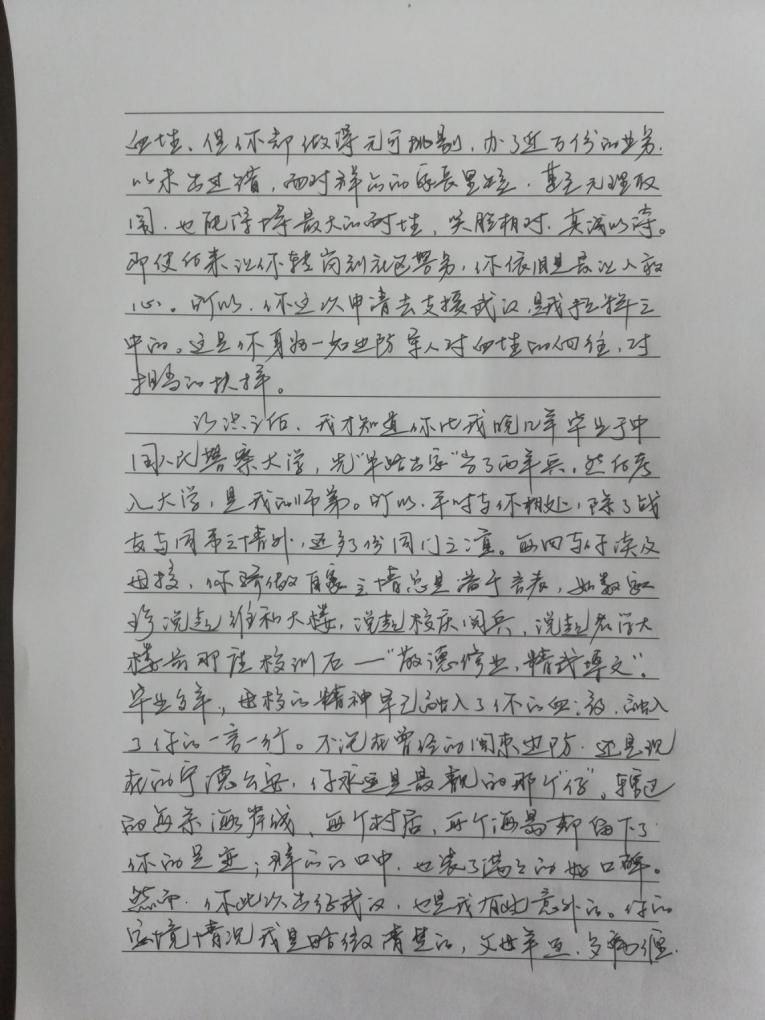 血性、但你却做得无可挑剔，办了近万份的业务，
从未出过错，面对群众的家长里短，甚至无理取
闹，也能保持最大的耐性，笑脸相对，真诚以待。
即使后来让你转岗到社区警务，你依旧是最让人放
心。所以，你这次申请去支援武汉，是我意料之
中的。这是你身为一名边防军人对血性的回往，对
担当的抉择。
认识之后，我才知道你比我晚几年毕业于中
国人民警察大学，先"半路出家"当了两年兵，然后考
入大学，是我的师弟。所以，平时与你相处，除了战
友与同事之情外，还多了份同门之谊。每回与你谈及
母校，你骄傲自豪之情总是溢于言表，如数家
珍说起维和大楼，说起校庆阅兵，说起教学大
楼前那座校训石—"敬德修业，精武博文"。
毕业多年，母校的精神早已融入了你的血液，融入
了你的一言一行。不论在曾经的闽东边防，还是现
在的宁德公安，你永远是最靓的那个"仔"。辖区
的每条海岸线、每个村居，每个海岛都留下了
你的足迹；群众的口中，也装了满满的好口碑。
然而，你此次出征武汉，也是我有些意外的。你的
家境情况我是略微清楚的，父母年迈，多病缠